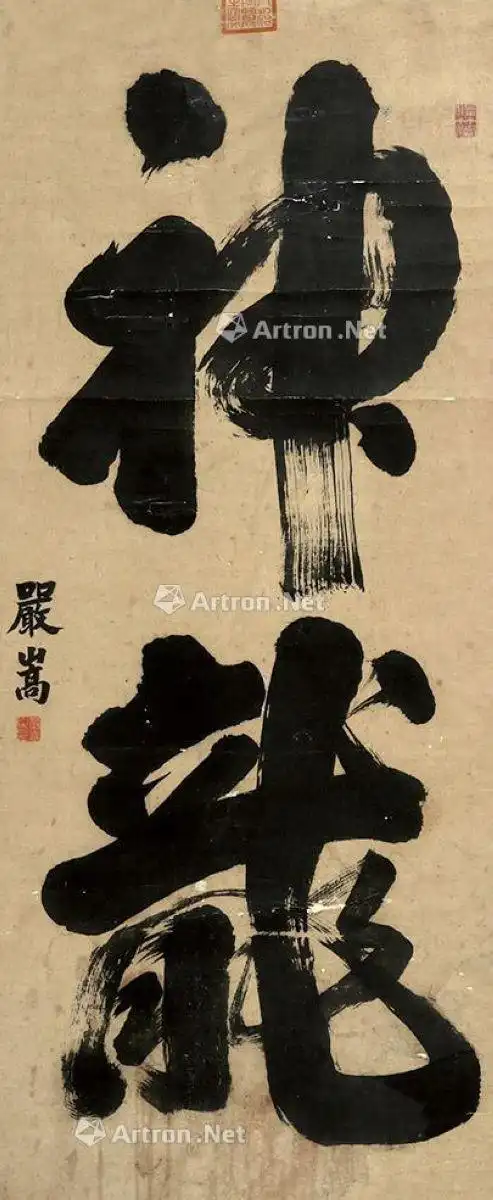 神龍
嚴嵩
Artron.Net
Artron.Net
Artron.Net